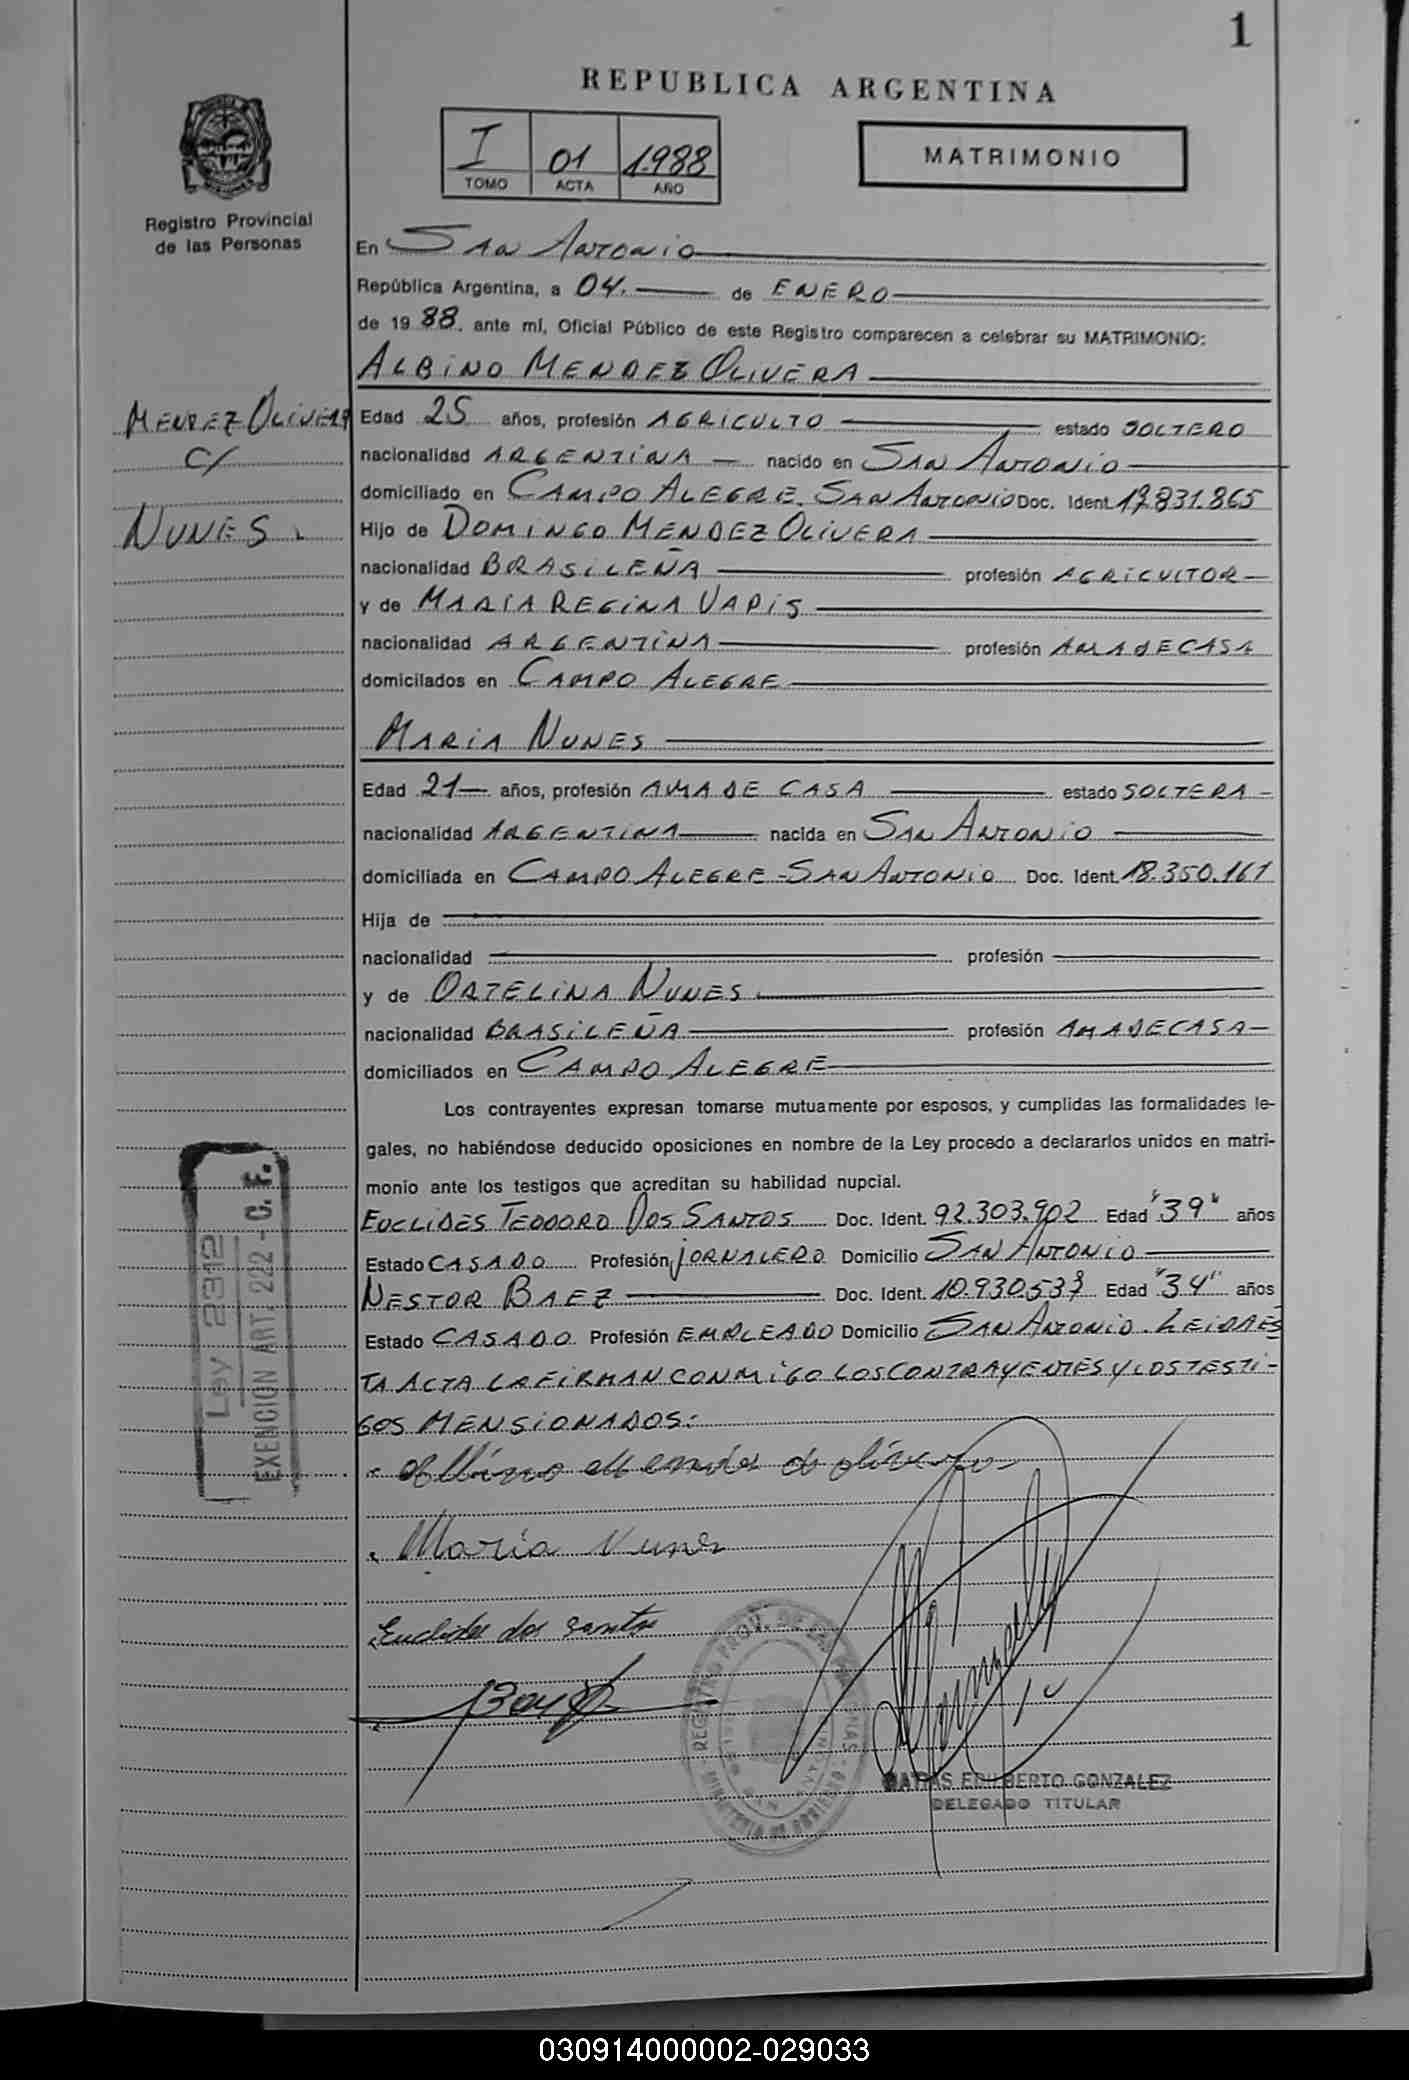 1
REPUBLICA ARGENTINA
I 01 1.988
TOMO ACTA AÑO
MATRIMONIO
Registro Provincial
de las Personas
En SAN ANTONIO
República Argentina, a 04. de ENERO
de 1988. ante mí, Oficial Público de este Registro comparecen a celebrar su MATRIMONIO:
ALBINO MENDEZ OLIVERA
MENDEZ OLIVERA
C/
NUNES.
Edad 25 años, profesión AGRICULTO estado SOLTERO
nacionalidad ARGENTINA nacido en SAN ANTONIO
domiciliado en CAMPO ALEGRE. SAN ANTONIO Doc. Ident. 17.831.865
Hijo de DOMINGO MENDEZ OLIVERA
nacionalidad BRASILEÑA profesión AGRICULTOR
y de MARIA REGINA VAPIS
nacionalidad ARGENTINA profesión AMA DE CASA
domicilados en CAMPO ALEGRE
MARIA NUNES
Edad 21 años, profesión AMA DE CASA estado SOLTERA
nacionalidad ARGENTINA nacida en SAN ANTONIO
domiciliada en CAMPO ALEGRE - SAN ANTONIO Doc. Ident. 18.350.161
Hija de
nacionalidad profesión
y de ORTELINA NUNES
nacionalidad BRASILEÑA profesión AMA DE CASA
domiciliados en CAMPO ALEGRE
Los contrayentes expresan tomarse mutuamente por esposos, y cumplidas las formalidades le-
gales, no habiéndose deducido oposiciones en nombre de la Ley procedo a declararlos unidos en matri-
monio ante los testigos que acreditan su habilidad nupcial.
EUCLIDES TEODORO DOS SANTOS Doc. Ident. 92.303.902 Edad "39" años
Estado CASADO Profesión JORNALERO Domicilio SAN ANTONIO
NESTOR BAEZ Doc. Ident. 10.930.537 Edad "34" años
Estado CASADO Profesión EMPLEADO Domicilio SAN ANTONIO. LEIDA ES
TA ACTA LA FIRMAN CONMIGO LOS CONTRAYENTES Y LOS TESTI-
GOS MENSIONADOS:
Ley 2312
EXENCION ART. 222 - C. F.
Maria Nunes
Euclides dos Santos
REGISTRO PROV. DE LAS PERSONAS
MINISTERIO DE GOBIERNO
MATIAS EDILBERTO GONZALEZ
DELEGADO TITULAR
030914000002-029033